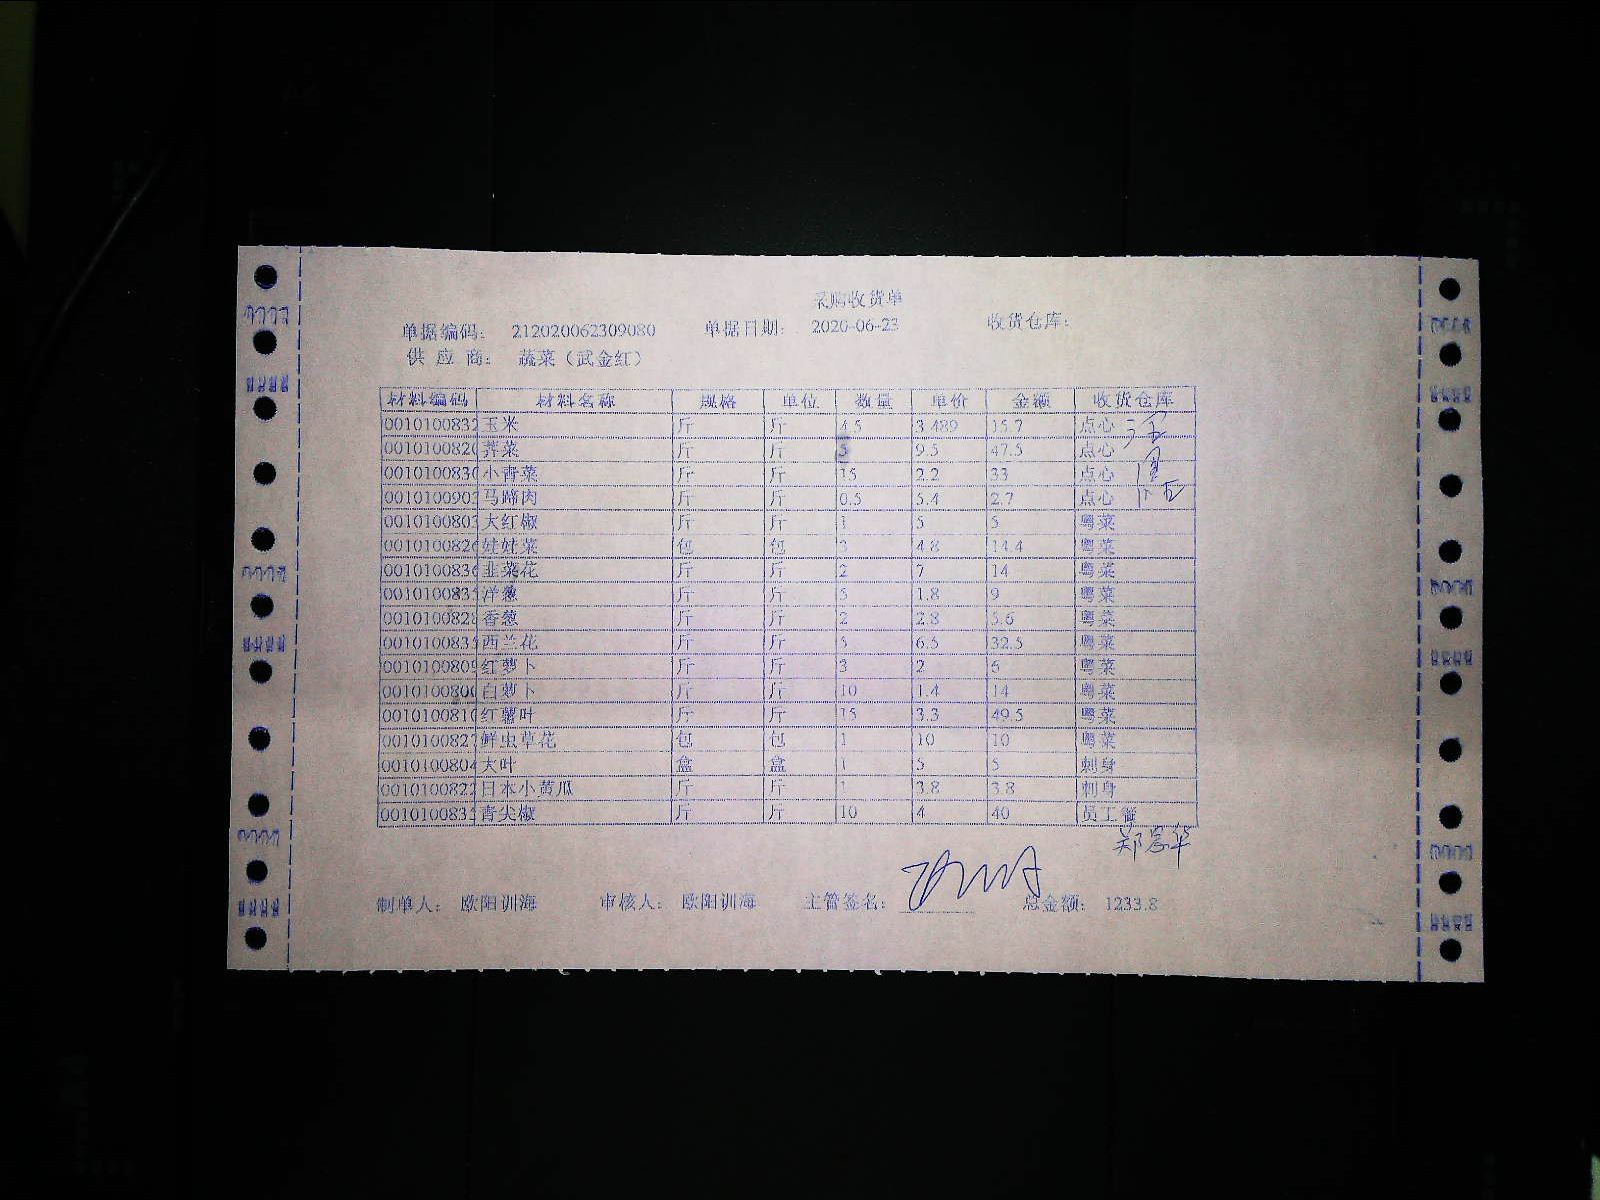 采购收货单
单据编码： 212020062309080 单据日期： 2020-06-23 收货仓库：
供 应 商： 蔬菜（武金红）
材料编码 材料名称 规格 单位 数量 单价 金额 收货仓库
0010100832 玉米 斤 斤 4.5 3.489 15.7 点心
001010082 荠菜 斤 斤 5 9.5 47.5 点心
001010083 小青菜 斤 斤 15 2.2 33 点心
001010090 马蹄肉 斤 斤 0.5 5.4 2.7 点心
001010080 大红椒 斤 斤 1 5 5 粤菜
001010082 娃娃菜 包 包 3 4.8 14.4 粤菜
001010083 韭菜花 斤 斤 2 7 14 粤菜
001010083 洋葱 斤 斤 5 1.8 9 粤菜
001010082 香葱 斤 斤 2 2.8 5.6 粤菜
001010083 西兰花 斤 斤 5 6.5 32.5 粤菜
001010080 红萝卜 斤 斤 3 2 6 粤菜
001010080 白萝卜 斤 斤 10 1.4 14 粤菜
001010081 红薯叶 斤 斤 15 3.3 49.5 粤菜
0010100827 鲜虫草花 包 包 1 10 10 粤菜
0010100804 大叶 盒 盒 1 5 5 刺身
0010100822 日本小黄瓜 斤 斤 1 3.8 3.8 刺身
001010083 青尖椒 斤 斤 10 4 40 员工餐
制单人： 欧阳训海 审核人： 欧阳训海 主管签名： 总金额： 1233.8